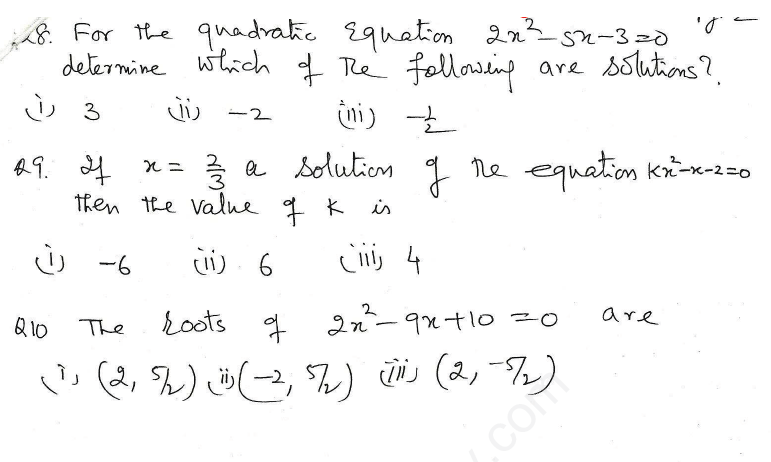 Q8. For the quadratic Equation 2x²-5x-3=0
determine which of the following are solutions?
(i) 3 (ii) -2 (iii) -1/2
Q9. If x = 2/3 a solution of the equation Kx²-x-2=0
then the value of K is
(i) -6 (ii) 6 (iii) 4
Q10 The roots of 2x²-9x+10=0 are
(i) (2, 5/2) (ii) (-2, 5/2) (iii) (2, -5/2)
.com